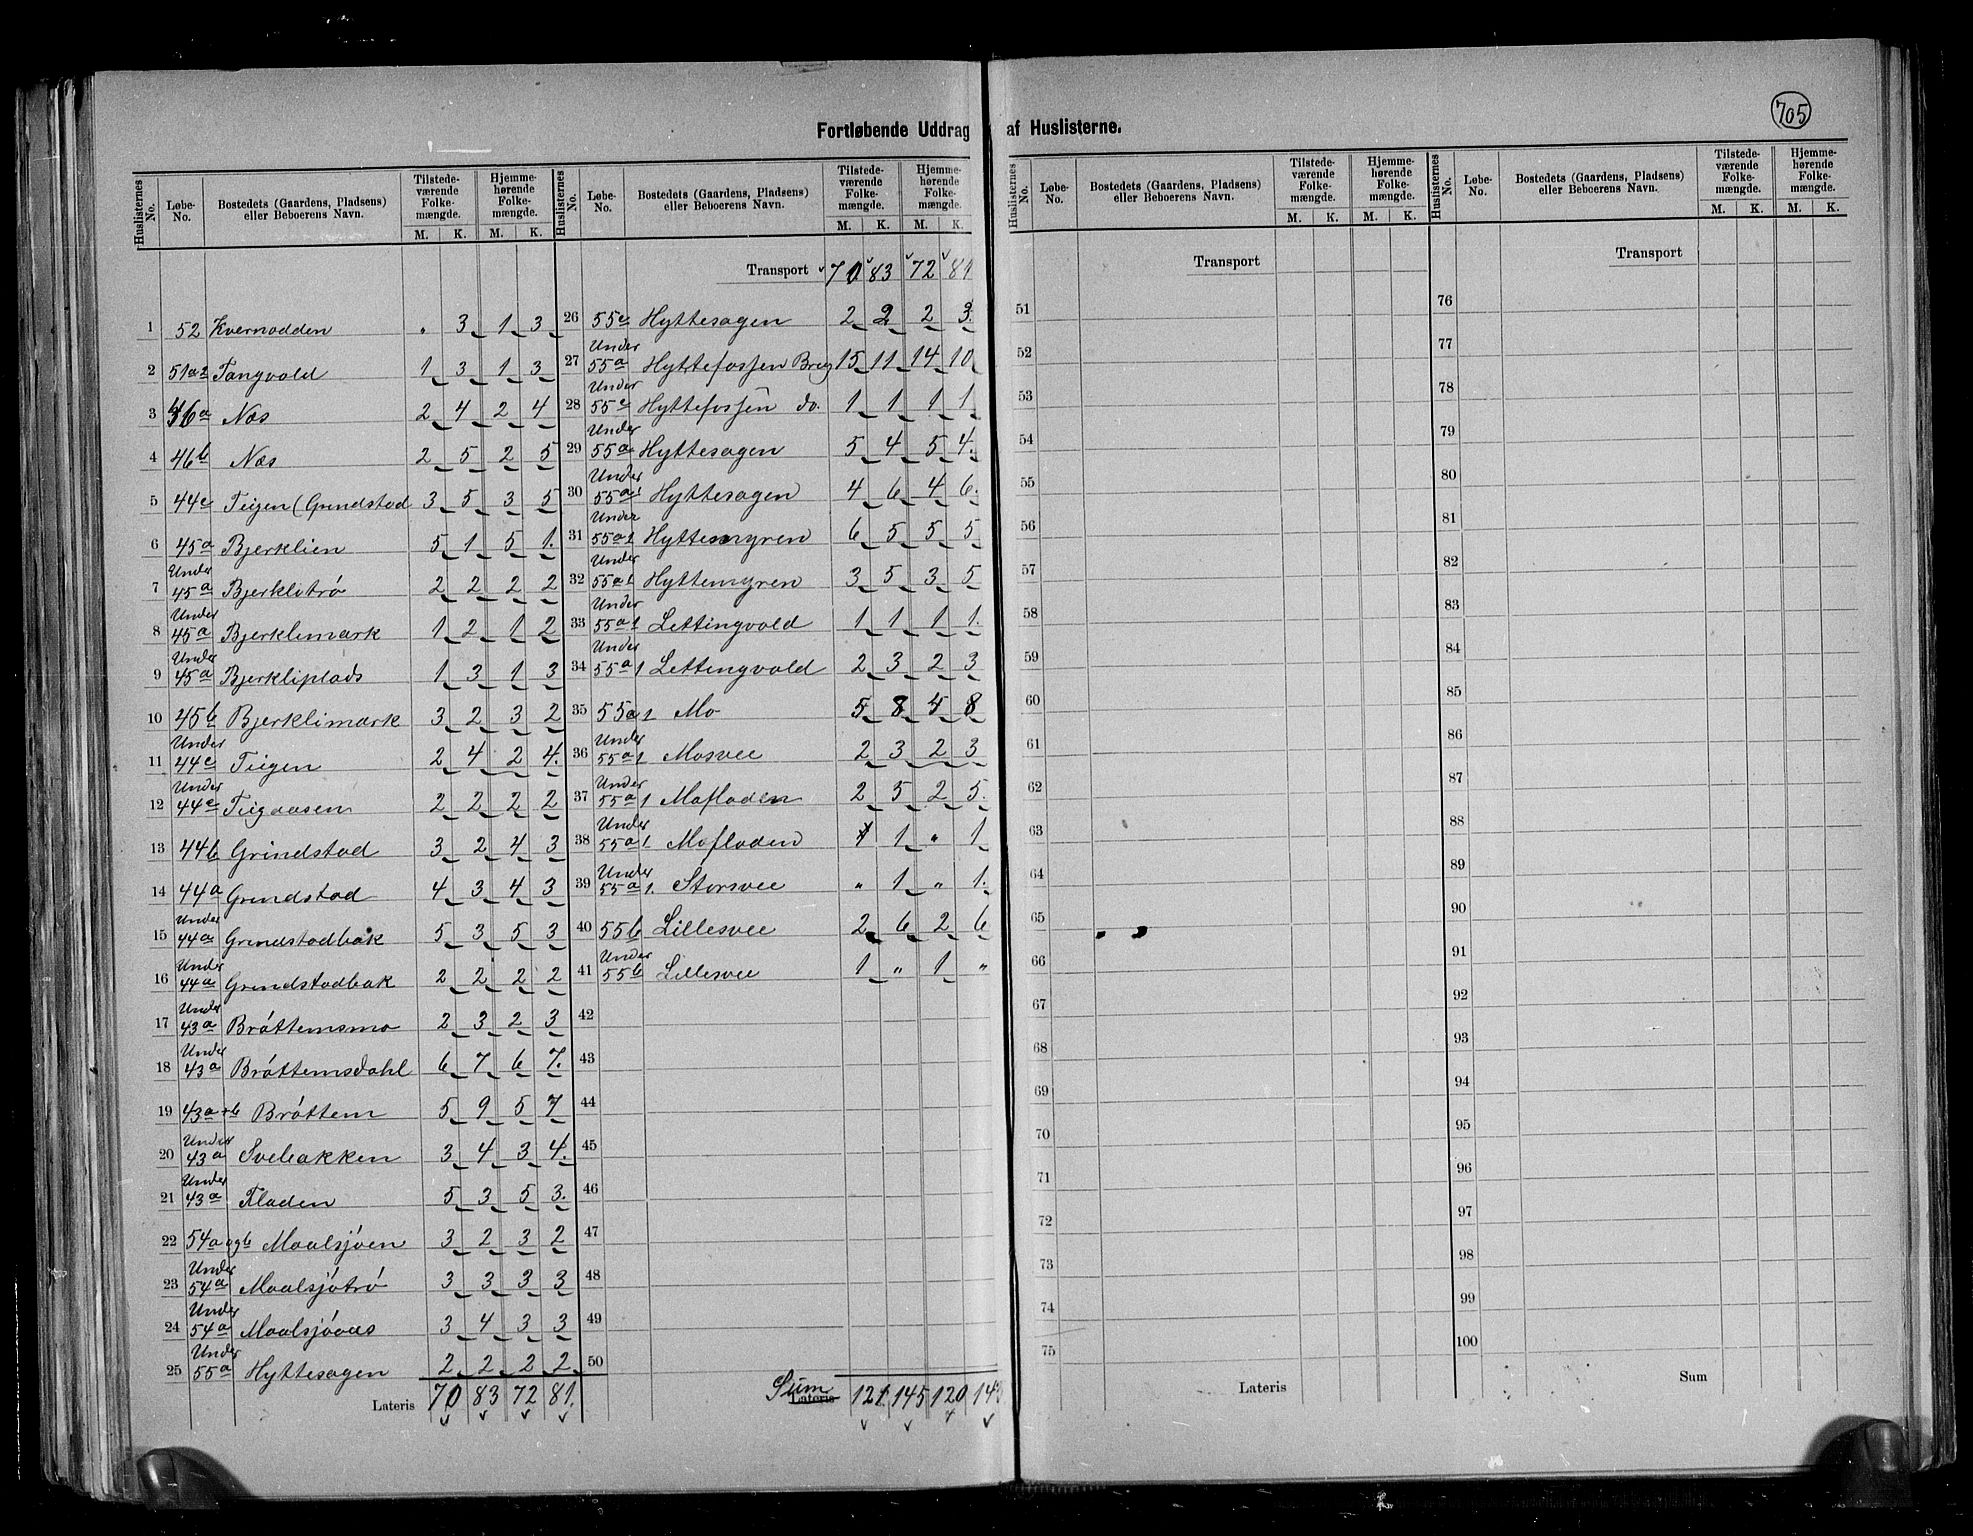 705
Fortløbende Uddrag af Huslisterne.
Huslisternes No. Løbe-No. Bostedets (Gaardens, Pladsens) eller Beboerens Navn. Tilstedeværende Folkemængde. M. K. Hjemmehørende Folkemængde. M. K.
1 52 Kvernodden " 3 1 3
2 51a2 Tangvold 1 3 1 3
3 46a Næs 2 4 2 4
4 46b Næs 2 5 2 5
5 44c Teigen (Grindstad 3 5 3 5
6 45a Bjerklien 5 1 5 1.
7 Under 45a Bjerklitrø 2 2 2 2
8 Under 45a Bjerklimark 1 2 1 2
9 Under 45a Bjerkliplads 1 3 1 3
10 45b Bjerklimark 3 2 3 2
11 Under 44c Teigen 2 4 2 4.
12 Under 44c Teigaasen 2 2 2 2
13 44b Grindstad 3 2 4 3
14 44a Grindstad 4 3 4 3
15 Under 44a Grindstadbak 5 3 5 3
16 Under 44a Grindstadbak 2 2 2 2
17 Under 43a Bróttemsmo 2 3 2 3
18 Under 43a Bróttemsdahl 6 7 6 7.
19 43a+b Bróttem 5 9 5 7
20 Under 43a Svebakken 3 4 3 4.
21 Under 43a Fladen 5 3 5 3.
22 54a og b Maalsjóen 3 2 3 2
23 Under 54a Maalsjótró 3 3 3 3
24 Under 54a Maalsjóaas 3 4 3 3
25 Under 55a Hyttesagen 2 2 2 2
Lateris 70 83 72 81.
Huslisternes No. Løbe-No. Bostedets (Gaardens, Pladsens) eller Beboerens Navn. Tilstedeværende Folkemængde. M. K. Hjemmehørende Folkemængde. M. K.
Transport 70 83 72 81
26 55c Hyttesagen 2 2 2 3.
27 Under 55a Hyttefossen Brug 15 11 14 10
28 Under 55c Hyttefossen do. 1 1 1 1
29 Under 55a Hyttesagen 5 4 5 4.
30 Under 55a1 Hyttesagen 4 6 4 6.
31 Under 55a1 Hyttemyren 6 5 5 5
32 Under 55a1 Hyttemyren 3 5 3 5
33 Under 55a1 Lettingvold 1 1 1 1.
34 Under 55a1 Lettingvold 2 3 2 3
35 55a1 Mo 5 8 5 8
36 Under 55a1 Mosvee 2 3 2 3
37 Under 55a1 Mofladen 2 5 2 5.
38 Under 55a1 Mofladen 1 " 1
39 Under 55a1. Storsvee " 1 " 1.
40 55b Lillesvee 2 6 2 6
41 Under 55b Lillesvee 1 " 1 "
42
43
44
45
46
47
48
49
50
Sum Lateris 121 145 120 143
Huslisternes No. Løbe-No. Bostedets (Gaardens, Pladsens) eller Beboerens Navn. Tilstedeværende Folkemængde. M. K. Hjemmehørende Folkemængde. M. K.
Transport
51
52
53
54
55
56
57
58
59
60
61
62
63
64
65
66
67
68
69
70
71
72
73
74
75
Lateris
Huslisternes No. Løbe-No. Bostedets (Gaardens, Pladsens) eller Beboerens Navn. Tilstedeværende Folkemængde. M. K. Hjemmehørende Folkemængde. M. K.
Transport
76
77
78
79
80
81
82
83
84
85
86
87
88
89
90
91
92
93
94
95
96
97
98
99
100
Sum